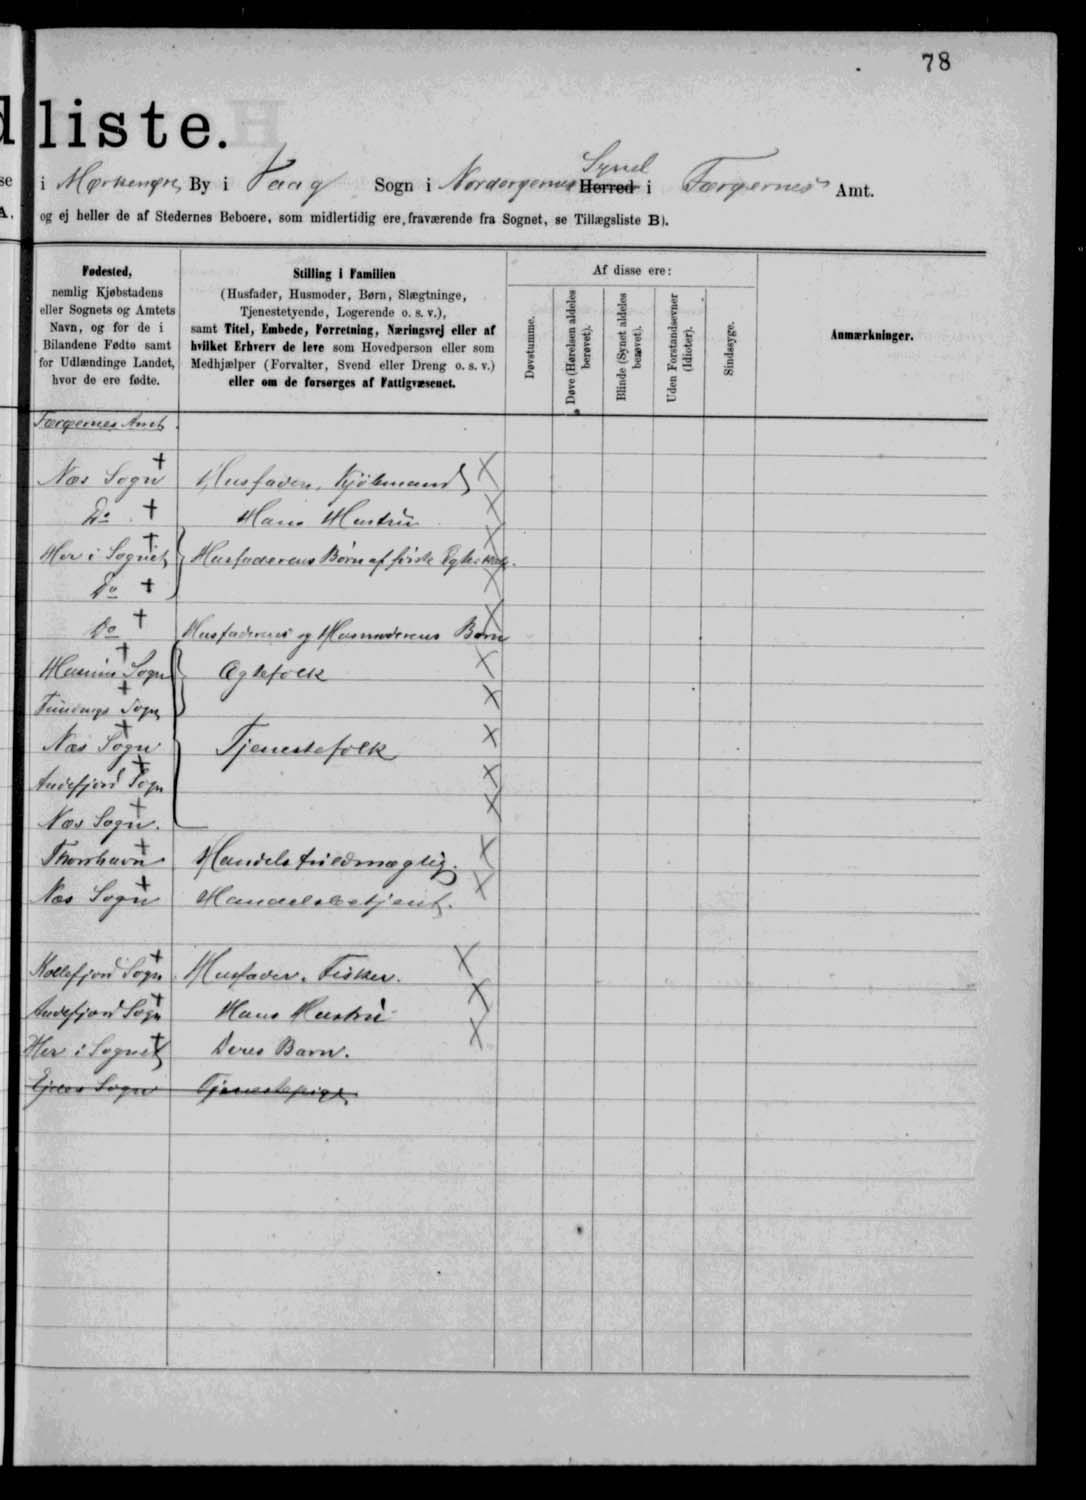 78
d
liste.
se
i By i Vaag Sogn i Norderøernes Herred i Færøernes Amt.
Syssel
A.
og ej heller de af Stedernes Beboere, som midlertidig ere fraværende fra Sognet, se Tillægsliste B).
Fødested,
nemlig Kjøbstadens
eller Sognets og Amtets
Navn, og for de i
Bilandene Fødte samt
for Udlændinge Landet,
hvor de ere fødte.
Stilling i Familien
(Husfader, Husmoder, Børn, Slægtninge,
Tjenestetyende, Logerende o. s. v.),
samt Titel, Embede, Forretning, Næringsvej eller af
hvilket Erhverv de leve som Hovedperson eller som
Medhjælper (Forvalter, Svend eller Dreng o. s. v.)
eller om de forsørges af Fattigvæsenet.
Af disse ere:
Døvstumme.
Døve (Hørelsen aldeles
berøvet).
Blinde (Synet aldeles
berøvet).
Uden Forstandsevner
(Idioter).
Sindssyge.
Anmærkninger.
Færøernes Amt
Næs Sogn Husfader, Kjøbmand
Do Hans Hustru
Her i Sognet Husfaderens Børn af første Egteskab.
Do
Do Husfaderens og Husmoderens Børn
Sogn Ægtefolk
Fundings Sogn
Næs Sogn Tjenestefolk
Andefjord Sogn
Næs Sogn.
Thorshavn Handelsfuldmægtig.
Næs Sogn Handelsbetjent.
Kollefjord Sogn Husfader. Fisker.
Andefjord Sogn Hans Hustru
Her i Sognet Deres Barn.
Sogn Tjenestepige